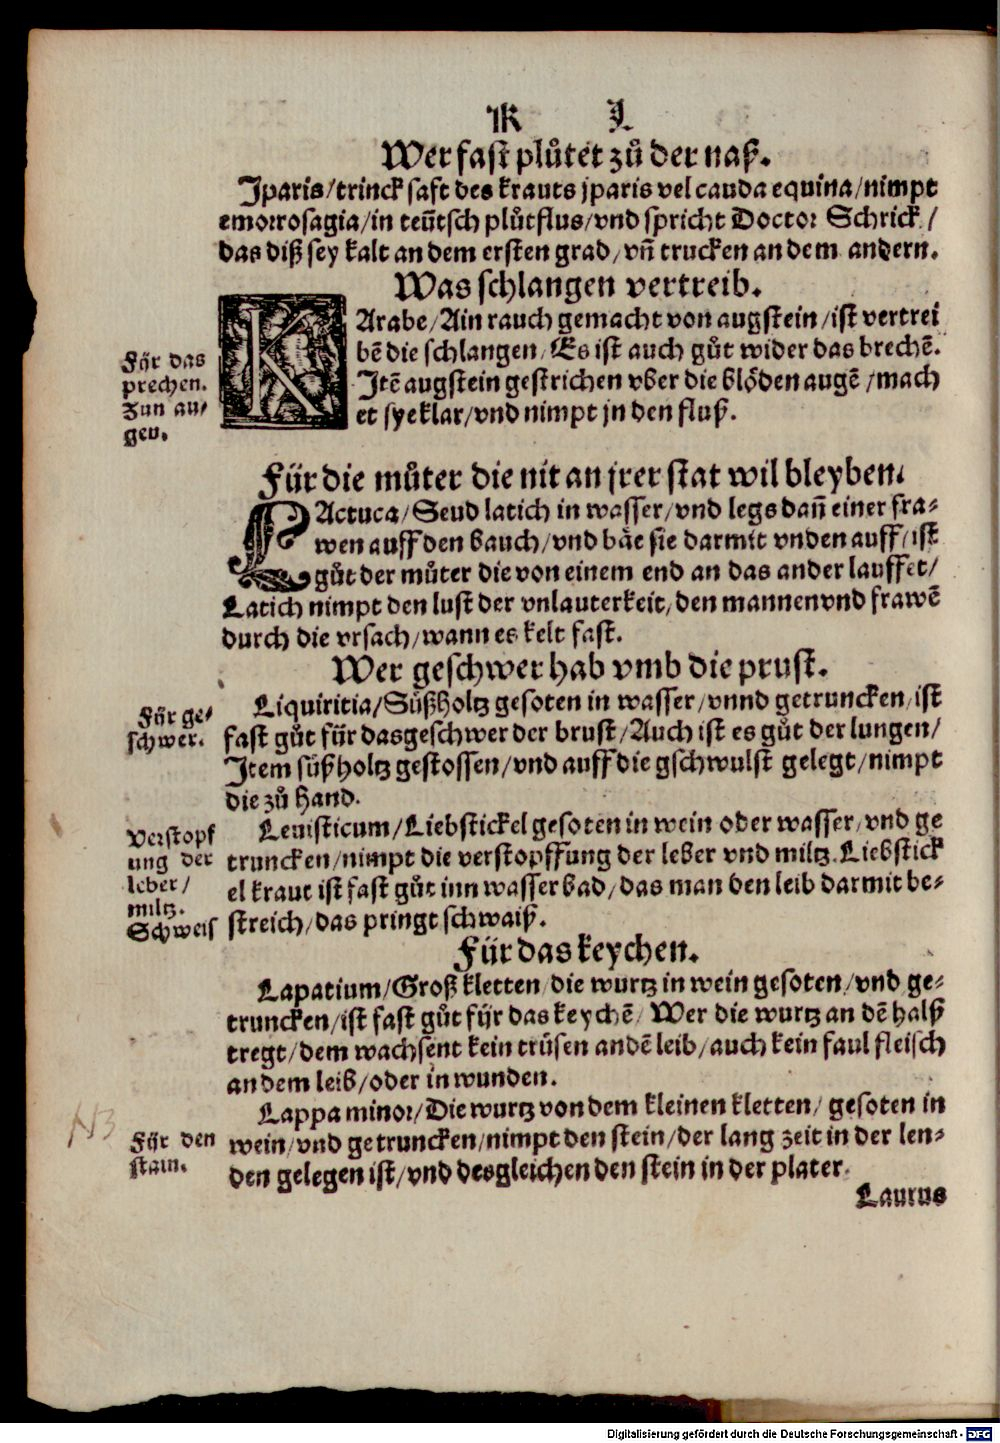 K L
Wer fast plůtet zů der naß.
Jparis/trinck saft des krauts jparis vel cauda equina/nimpt
emorrosagia/in teütsch plůtflus/vnd spricht Doctor Schrick/
das diß sey kalt an dem ersten grad/vñ trucken an dem andern.
Was schlangen vertreib.
KArabe/Ain rauch gemacht von augstein/ist vertrei
bē die schlangen/Es ist auch gůt wider das brechē.
Jtē augstein gestrichen vber die blöden augē/mach
et sye klar/vnd nimpt jn den fluß.
Für das
prechen.
Zun au/
gen.
Für die můter die nit an jrer stat wil bleyben.
LActuca/Seud latich in wasser/vnd legs dañ einer fra-
wen auff den bauch/vnd bäe sie darmit vnden auff/ist
gůt der můter die von einem end an das ander lauffet/
Latich nimpt den lust der vnlauterkeit/den mannen vnd frawē
durch die vrsach/wann es kelt fast.
Wer geschwer hab vmb die prust.
Liquiritia/Süßholtz gesoten in wasser/vnnd getruncken/ist
fast gůt für das geschwer der brust/Auch ist es gůt der lungen/
Jtem süßholtz gestossen/vnd auff die gschwulst gelegt/nimpt
die zů hand.
Für ge/
schwer.
Leuisticum/Liebstickel gesoten in wein oder wasser/vnd ge
truncken/nimpt die verstopffung der leber vnd miltz. Liebstick
el kraut ist fast gůt inn wasser bad/das man den leib darmit be-
streich/das pringt schwaiß.
Verstopf
ung der
leber/
miltz.
Schweis
Für das keychen.
Lapatium/Groß kletten/die wurtz in wein gesoten/vnd ge-
truncken/ist fast gůt für das keychē/Wer die wurtz an dē halß
tregt/dem wachsent kein trüsen an dē leib/auch kein faul fleisch
an dem leib/oder in wunden.
Lappa minor/Die wurtz von dem kleinen kletten/gesoten in
wein/vnd getruncken/nimpt den stein/der lang zeit in der len-
den gelegen ist/vnd desgleichen den stein in der plater.
Für den
stain.
Laurus
Digitalisierung gefördert durch die Deutsche Forschungsgemeinschaft - DFG